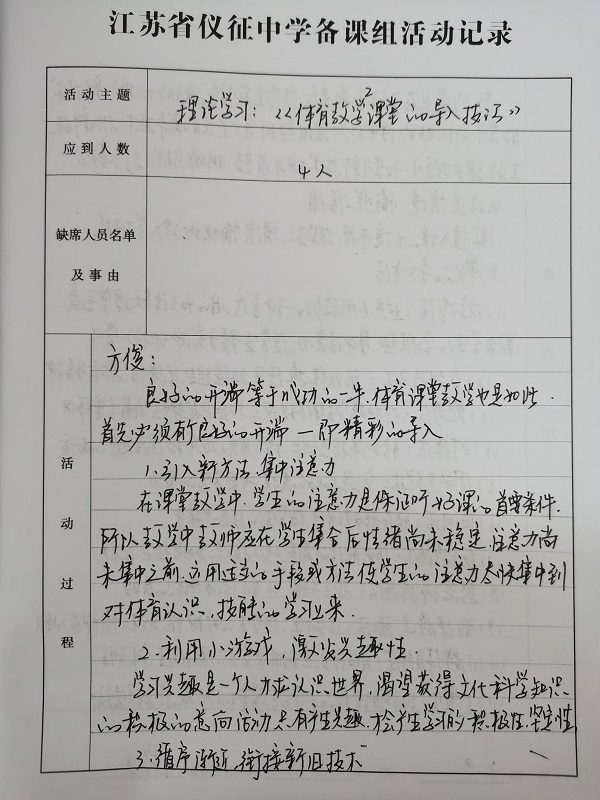 江苏省仪征中学备课组活动记录
活动主题
理论学习：《体育教学课堂的导入技巧》
2
应到人数
4人
缺席人员名单
及事由
活动过程
方俊：
良好的开端等于成功的一半，体育课堂教学也是如此．
首先必须有良好的开端—即精彩的导入
1.引入新方法，集中注意力
在课堂教学中，学生的注意力是保证听好课的首要条件．
所以教学中教师应在学生集合后情绪尚未稳定、注意力尚
未集中之前，运用适当的手段或方法使学生的注意力尽快集中到
对体育认识、技能的学习上来．
2.利用小游戏，激发兴趣性．
学习兴趣是一个人力求认识世界，渴望获得文化科学知识
的积极的意向活动，只有产生兴趣，才会产生学习的积极性、坚定性
3.循序渐近，衔接新旧技术